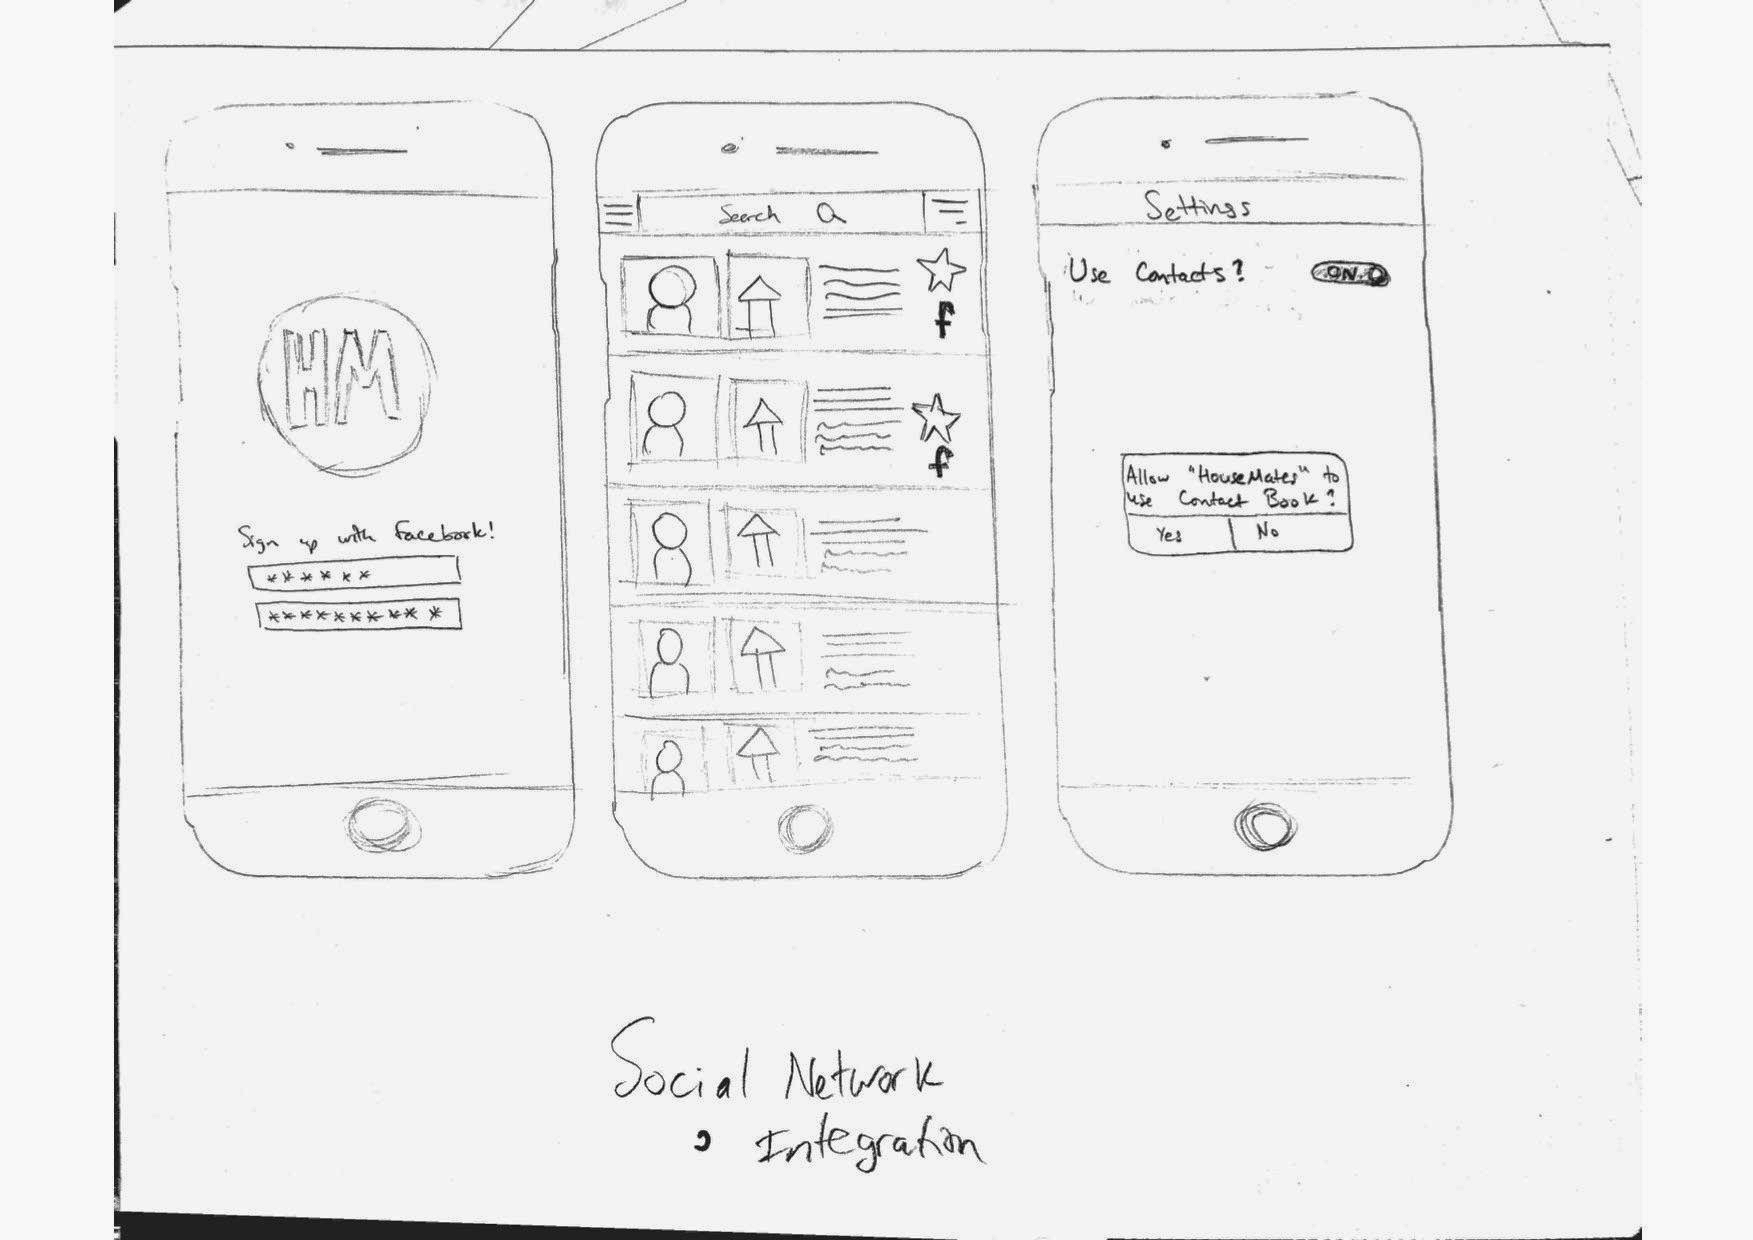 HM
Sign up with Facebook!
******
**********
Search
f
f
Settings
Use Contacts?
ON
Allow "HouseMates" to
use Contact Book?
Yes
No
Social Network
Integration